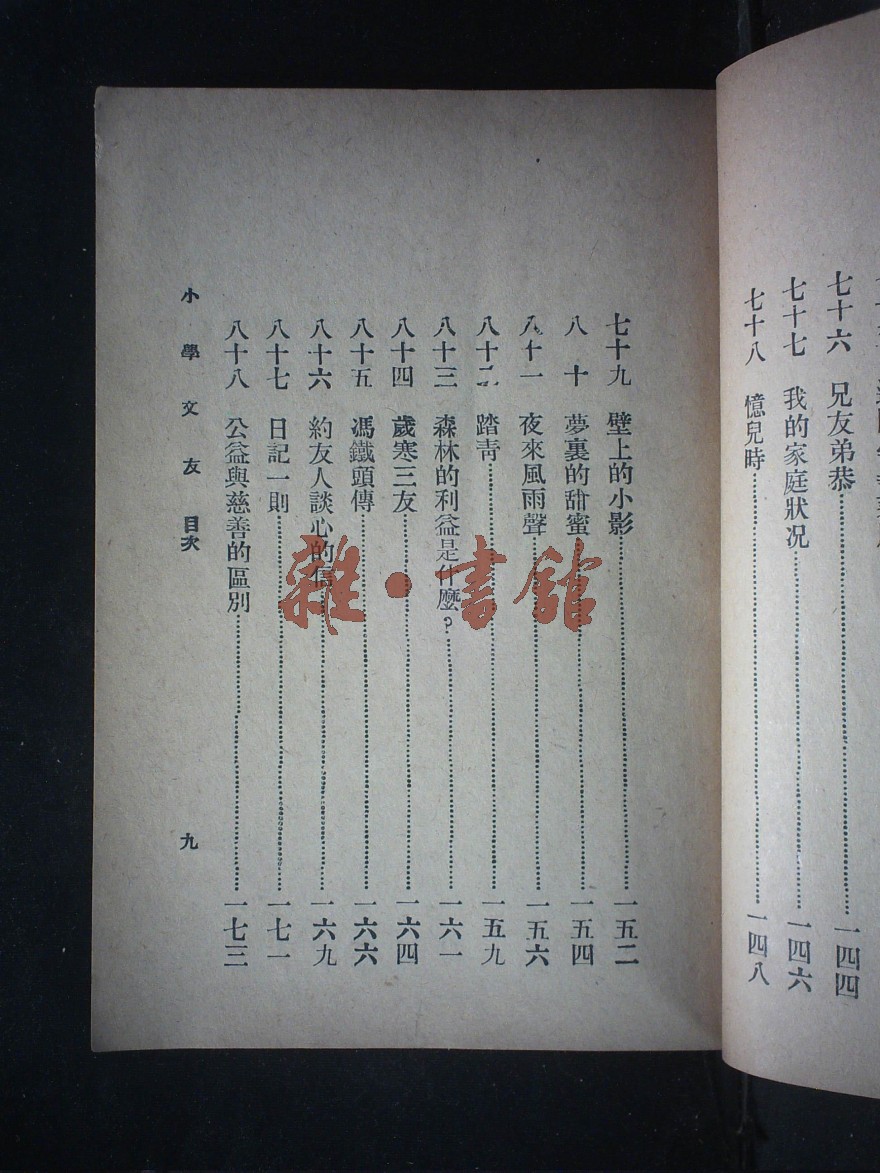 七十六 兄友弟恭 一四四
七十七 我的家庭狀况 一四六
七十八 憶兒時 一四八
七十九 壁上的小影 一五二
八十 夢裏的甜蜜 一五四
八十一 夜來風雨聲 一五六
八十二 踏靑 一五九
八十三 森林的利益是什麼？ 一六一
八十四 歲寒三友 一六四
八十五 馮鐵頭傳 一六六
八十六 約友人談心的信 一六九
八十七 日記一則 一七一
八十八 公益與慈善的區別 一七三
小學文友 目次 九
雜·書館